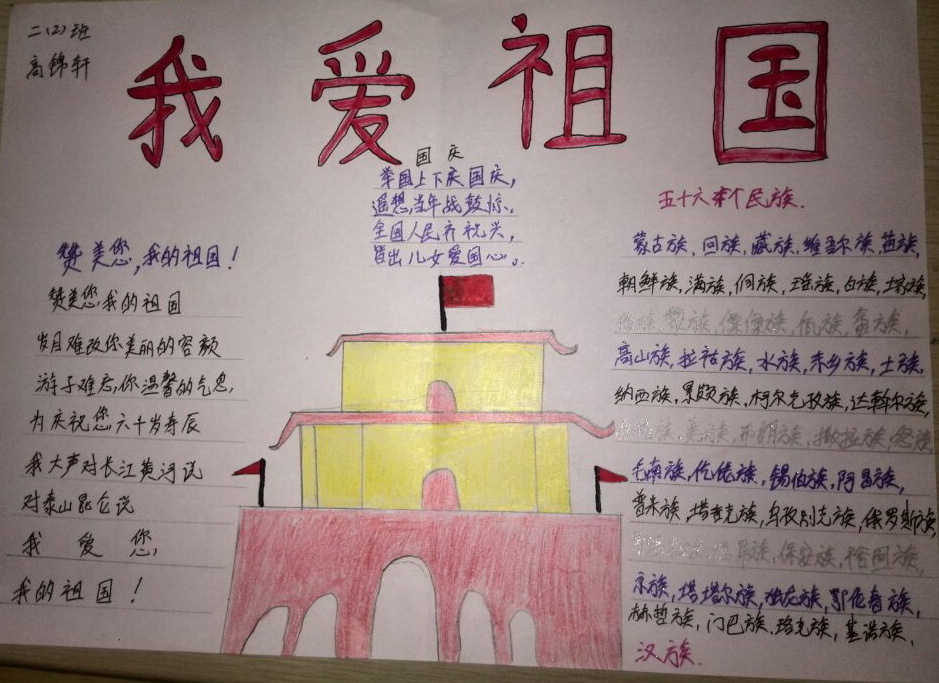 二(2)班
高锦轩
我爱祖国
国庆
举国上下庆国庆，
遥想当年战鼓惊，
全国人民齐祝兴，
皆出儿女爱国心。
赞美您，我的祖国！
赞美您我的祖国
岁月难改您美丽的容颜
游子难忘，你温馨的气息，
为庆祝您六十岁寿辰
我大声对长江黄河说
对泰山昆仑说
我爱您，
我的祖国！
五十六个民族.
蒙古族，回族，藏族，维吾尔族，苗族，
朝鲜族，满族，侗族，瑶族，白族，土家族，
傣族，黎族，傈僳族，佤族，畲族，
高山族，拉祜族，水族，东乡族，土族，
纳西族，景颇族，柯尔克孜族，达斡尔族，
羌族，布朗族，撒拉族，
毛南族，仡佬族，锡伯族，阿昌族，
普米族，塔吉克族，乌孜别克族，俄罗斯族，
保安族，裕固族，
京族，塔塔尔族，独龙族，鄂伦春族，
赫哲族，门巴族，珞克族，基诺族，
汉族.